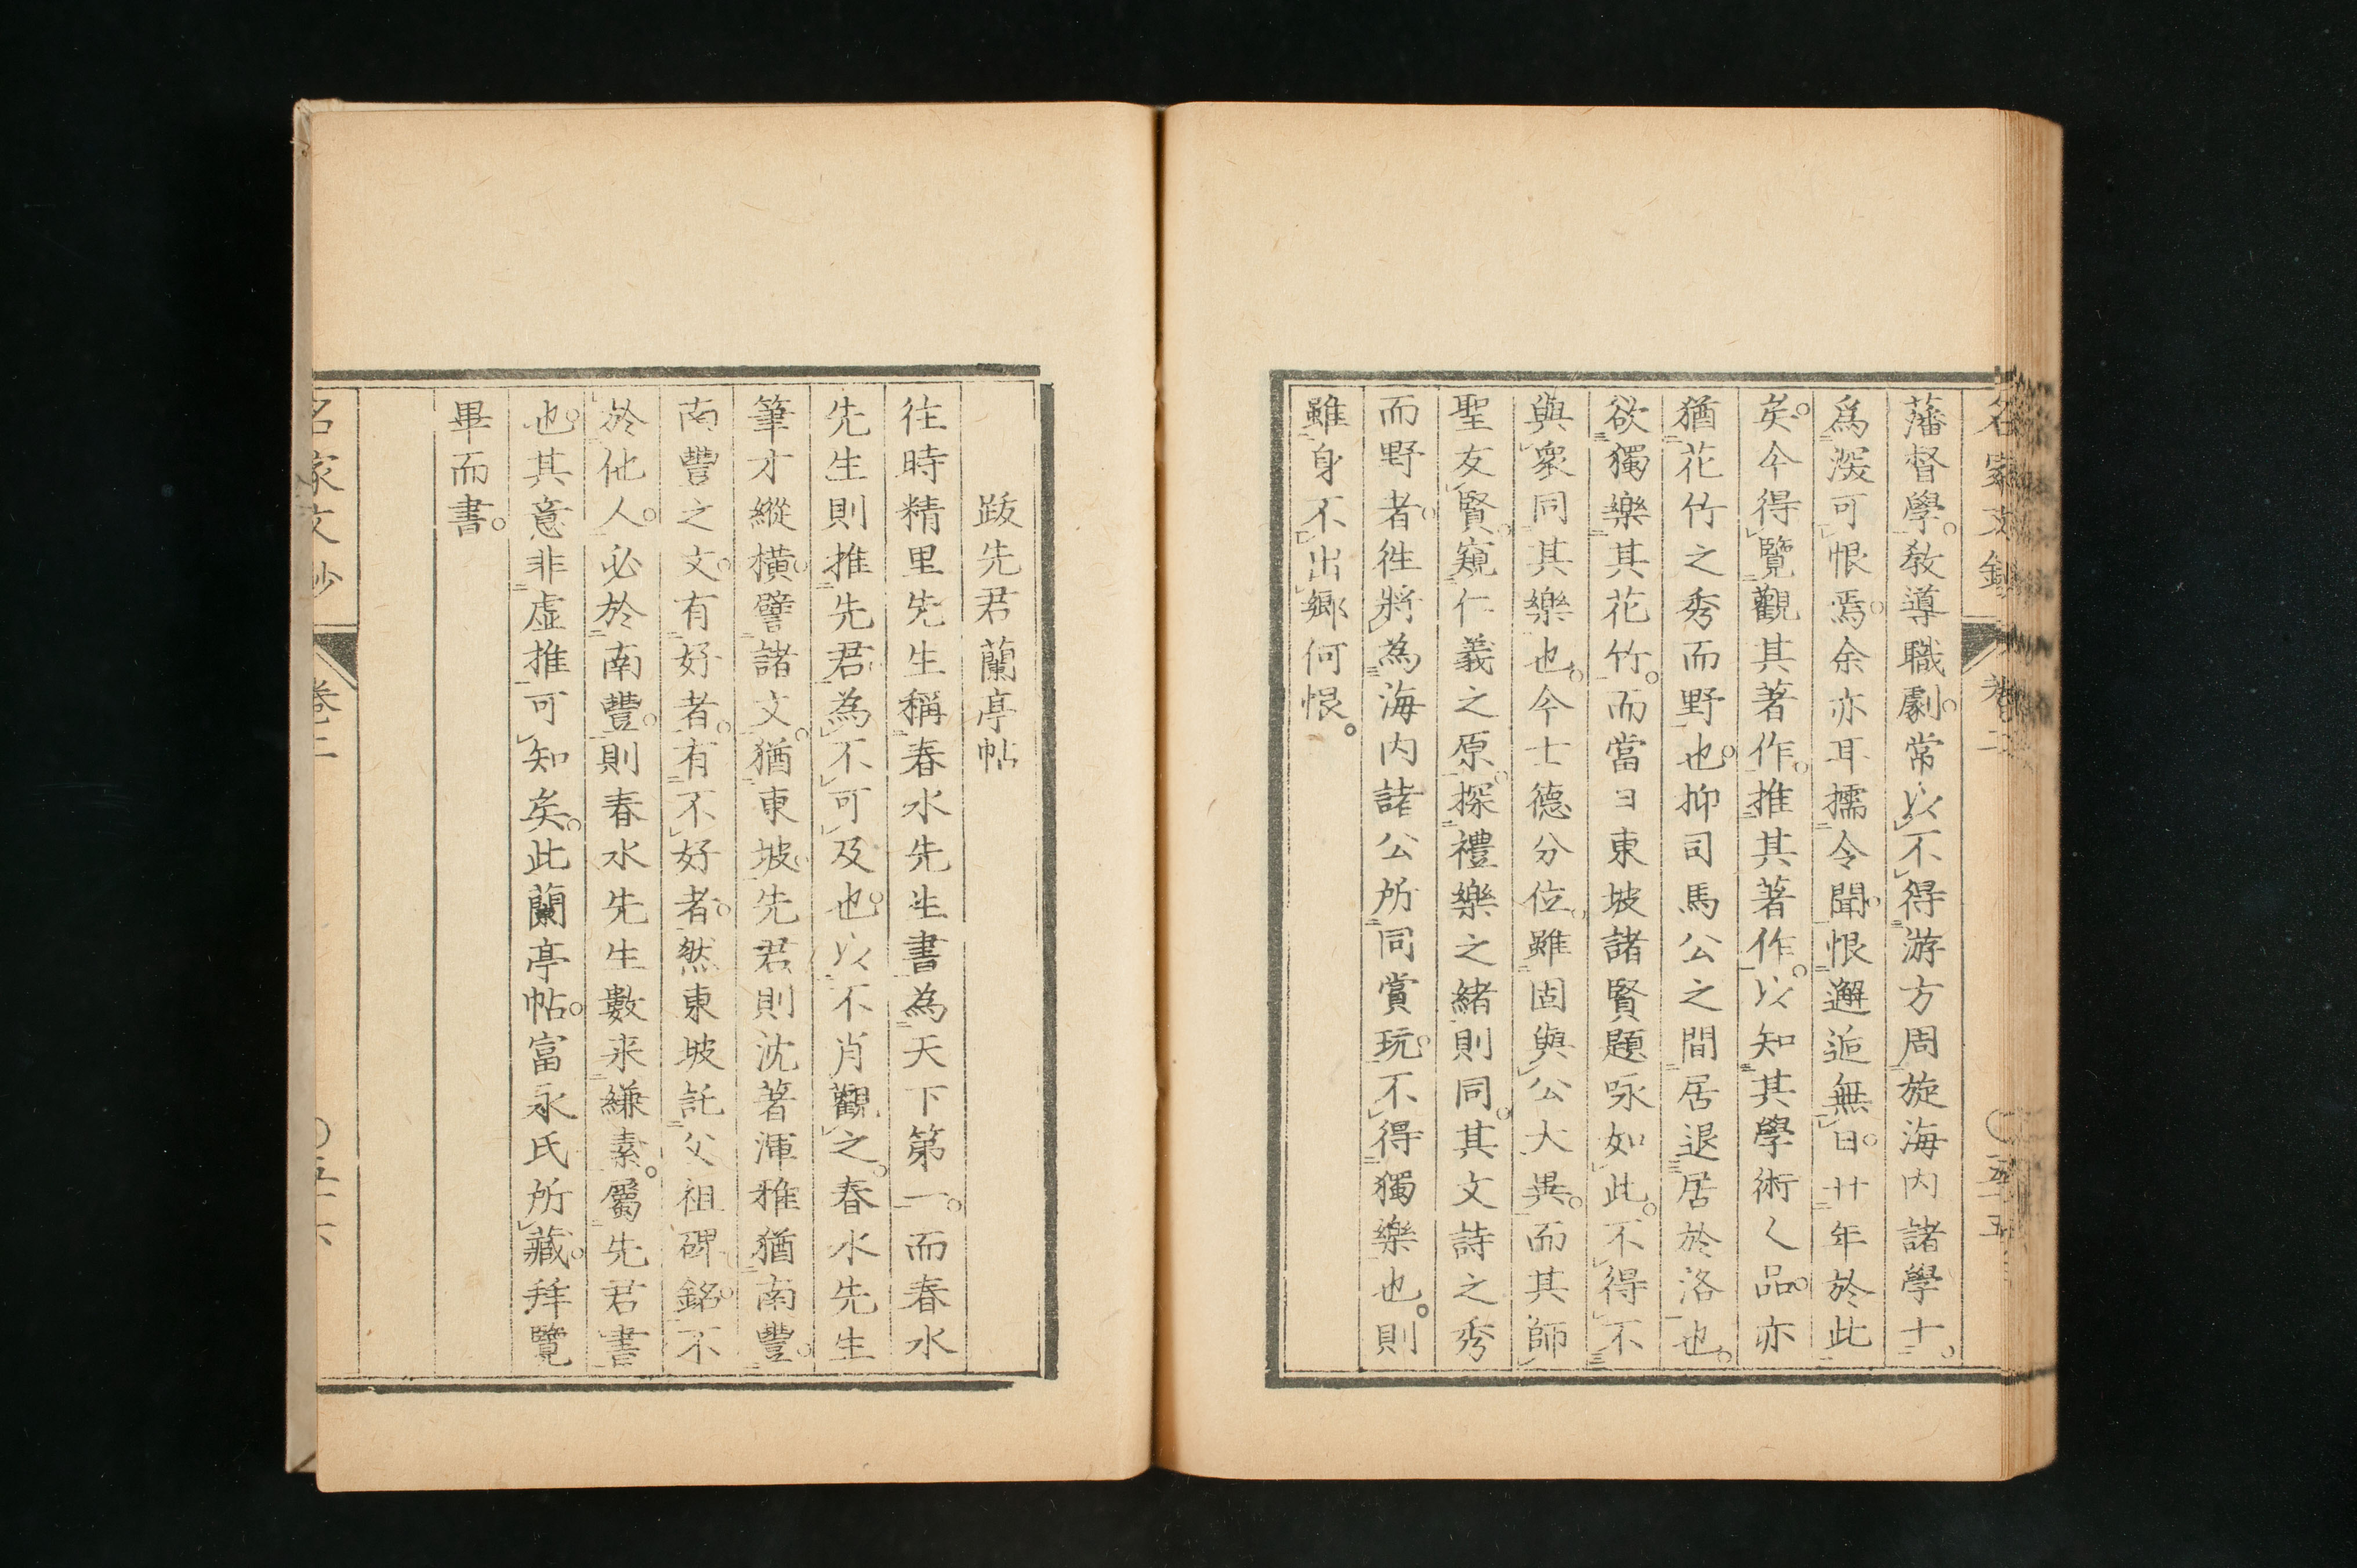 名家文鈔 卷二 〇五十五
藩督學。教導職劇。常以不得游方周旋海内諸學士。
爲深可恨焉。余亦耳擩令聞。恨邂逅無日。廿年於此
矣。今得覽觀其著作。推其著作。以知其學術人品。亦
猶花竹之秀而野也。抑司馬公之間居退居於洛也。
欲獨樂其花竹。而當日東坡諸賢題咏如此。不得不
與衆同其樂也。今士德分位。雖固與公大異。而其師
聖友賢。窺仁義之原。探禮樂之緒則同。其文詩之秀
而野者。徃將為海内諸公所同賞玩。不得獨樂也。則
雖身不出鄉何恨。
跋先君蘭亭帖
往時精里先生稱春水先生書為天下第一。而春水
先生則推先君為不可及也。以不肖觀之。春水先生
筆才縱橫。譬諸文。猶東坡。先君則沈著渾雅猶南豐。
南豐之文。有好者。有不好者。然東坡託父祖碑銘。不
於他人。必於南豐。則春水先生數来縑素。屬先君書
也。其意非虛推可知矣。此蘭亭帖。富永氏所藏。拜覽
畢而書。
名家文鈔 卷二 〇五十六